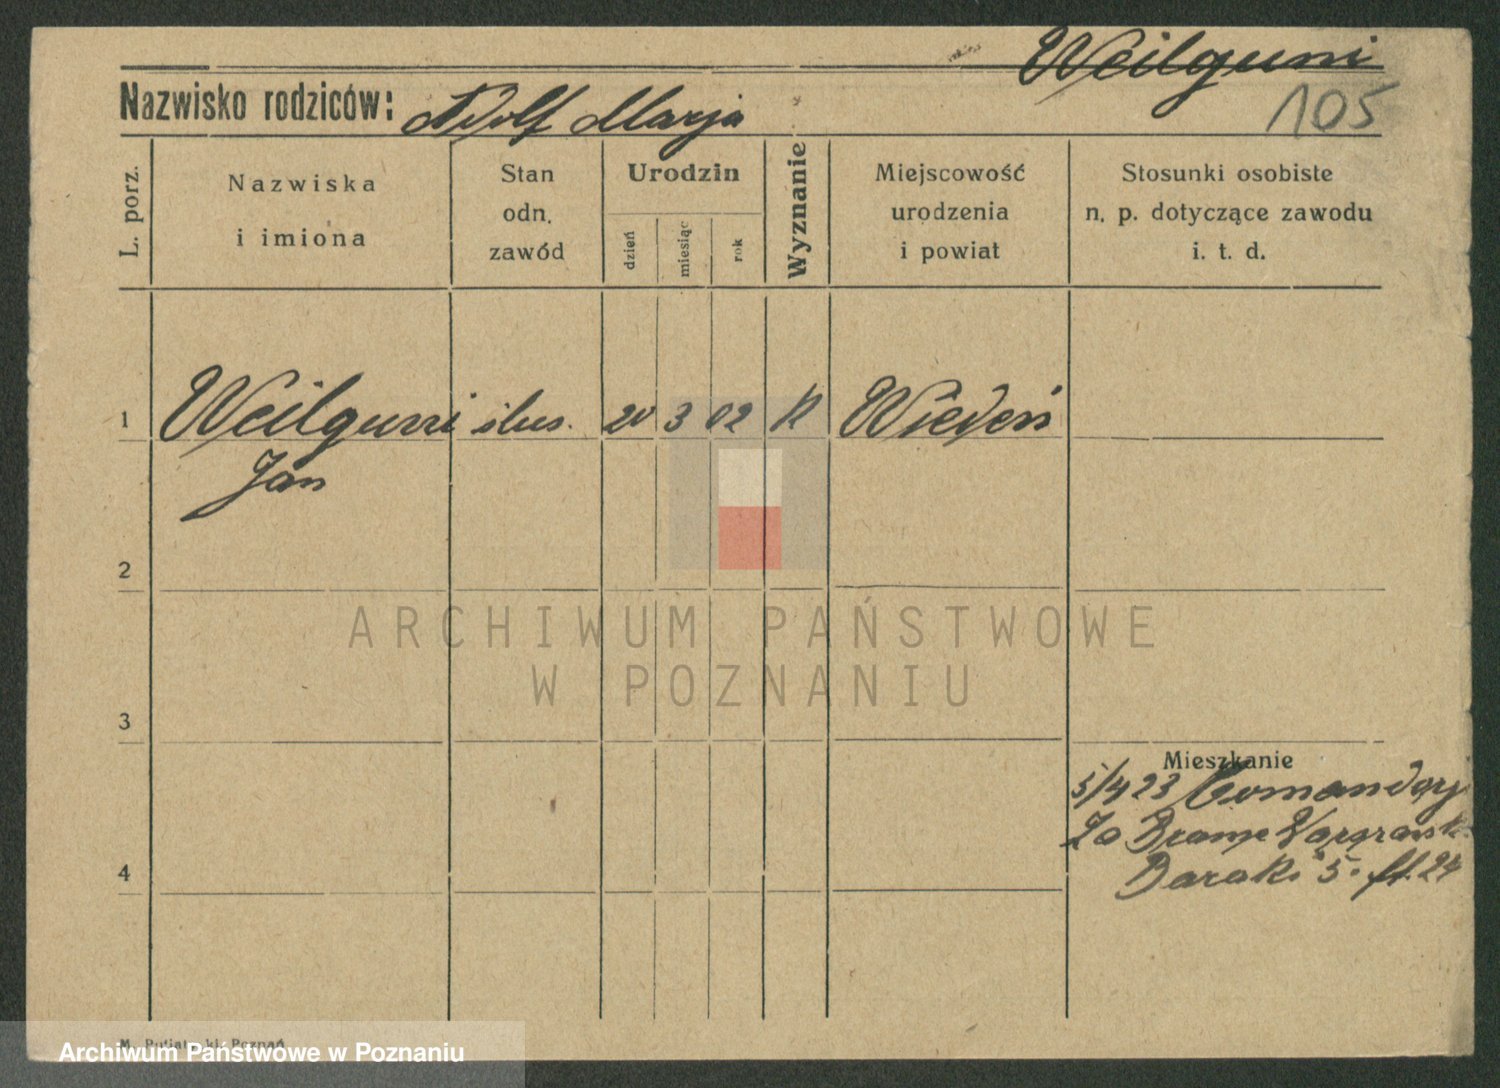 Weilguni
105
Nazwisko rodziców: Adolf Marja
L. porz.
Nazwiska
i imiona
Stan
odn.
zawód
Urodzin
dzień
miesiąc
rok
Wyznanie
Miejscowość
urodzenia
i powiat
Stosunki osobiste
n. p. dotyczące zawodu
i. t. d.
1 Weilguni ślus. 20 3 02 K Wiedeń
Jan
2
ARCHIWUM PAŃSTWOWE
W POZNANIU
3
Mieszkanie
5/4 23
Za Bramę
4
Baraki 5. 24
M. Poznań
Archiwum Państwowe w Poznaniu